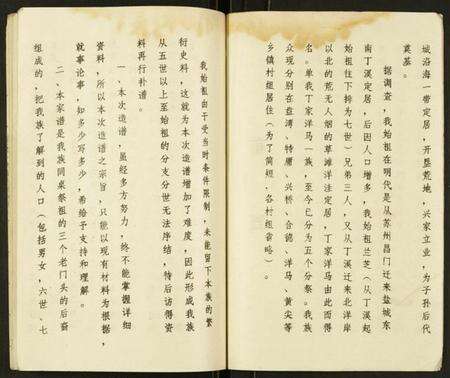 域沿海一带定居，开垦荒地，兴家立业，为子孙后代
奠基。
据调查，我始祖在明代是从苏州昌门迁来盐城东
南丁溪定居，后因人口增多，我始祖兰芝（从丁溪起
始祖往下排为七世）兄弟三人，又从丁溪迁来北洋岸
以北的荒无人烟的草滩洋注定居，丁家洋马由此而得
名。单我丁家洋马一族，至今已分为五个分祭。我族
众现分别在盘湾、特庸、兴桥、合德、洋马、黄尖等
乡镇村组居住（为了简短，各村组省略）。
我始祖由于受当时条件限制，未能留下本族的繁
衍史料，这就为本次造谱增加了难度，因此形成我族
从五世以上至始祖的分支分世无法序结，待后访得资
料再行补谱。
一、本次造谱，虽经多方努力，终不能掌握详细
资料，所以本次造谱之宗旨，只能以现有材料为根据，
就事论事，知多少写多少，希给予支持和理解。
二、本家谱是我族同桌祭祖的三个老门头的后裔
组成的，把我族了解到的人口（包括男女，六世、七